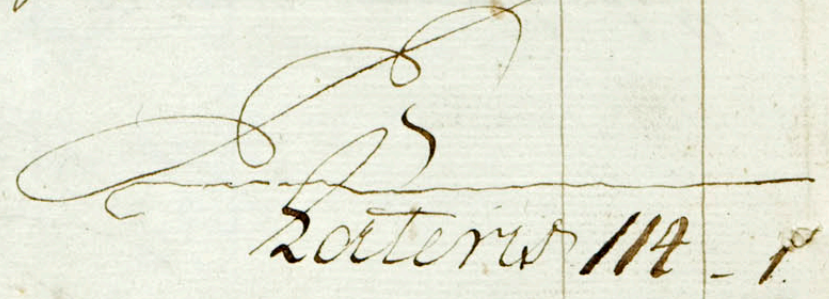 Lateris 114 - 1